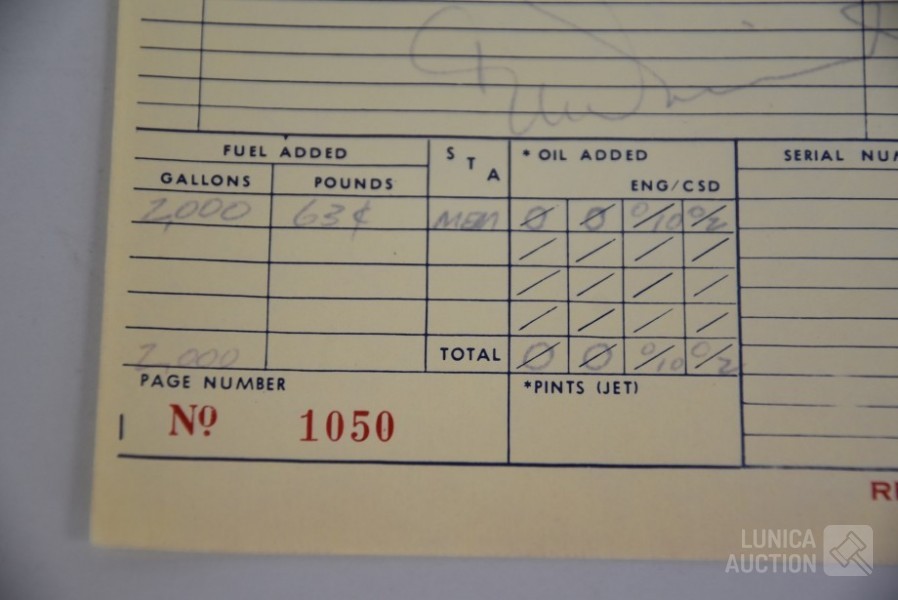 FUEL ADDED S T A * OIL ADDED SERIAL NUM
GALLONS POUNDS ENG/CSD
2,000 63¢ MEM Ø Ø 0/10 0/2
2,000 TOTAL Ø Ø 0/10 0/2
PAGE NUMBER *PINTS (JET)
Nº 1050
LUNICA
AUCTION